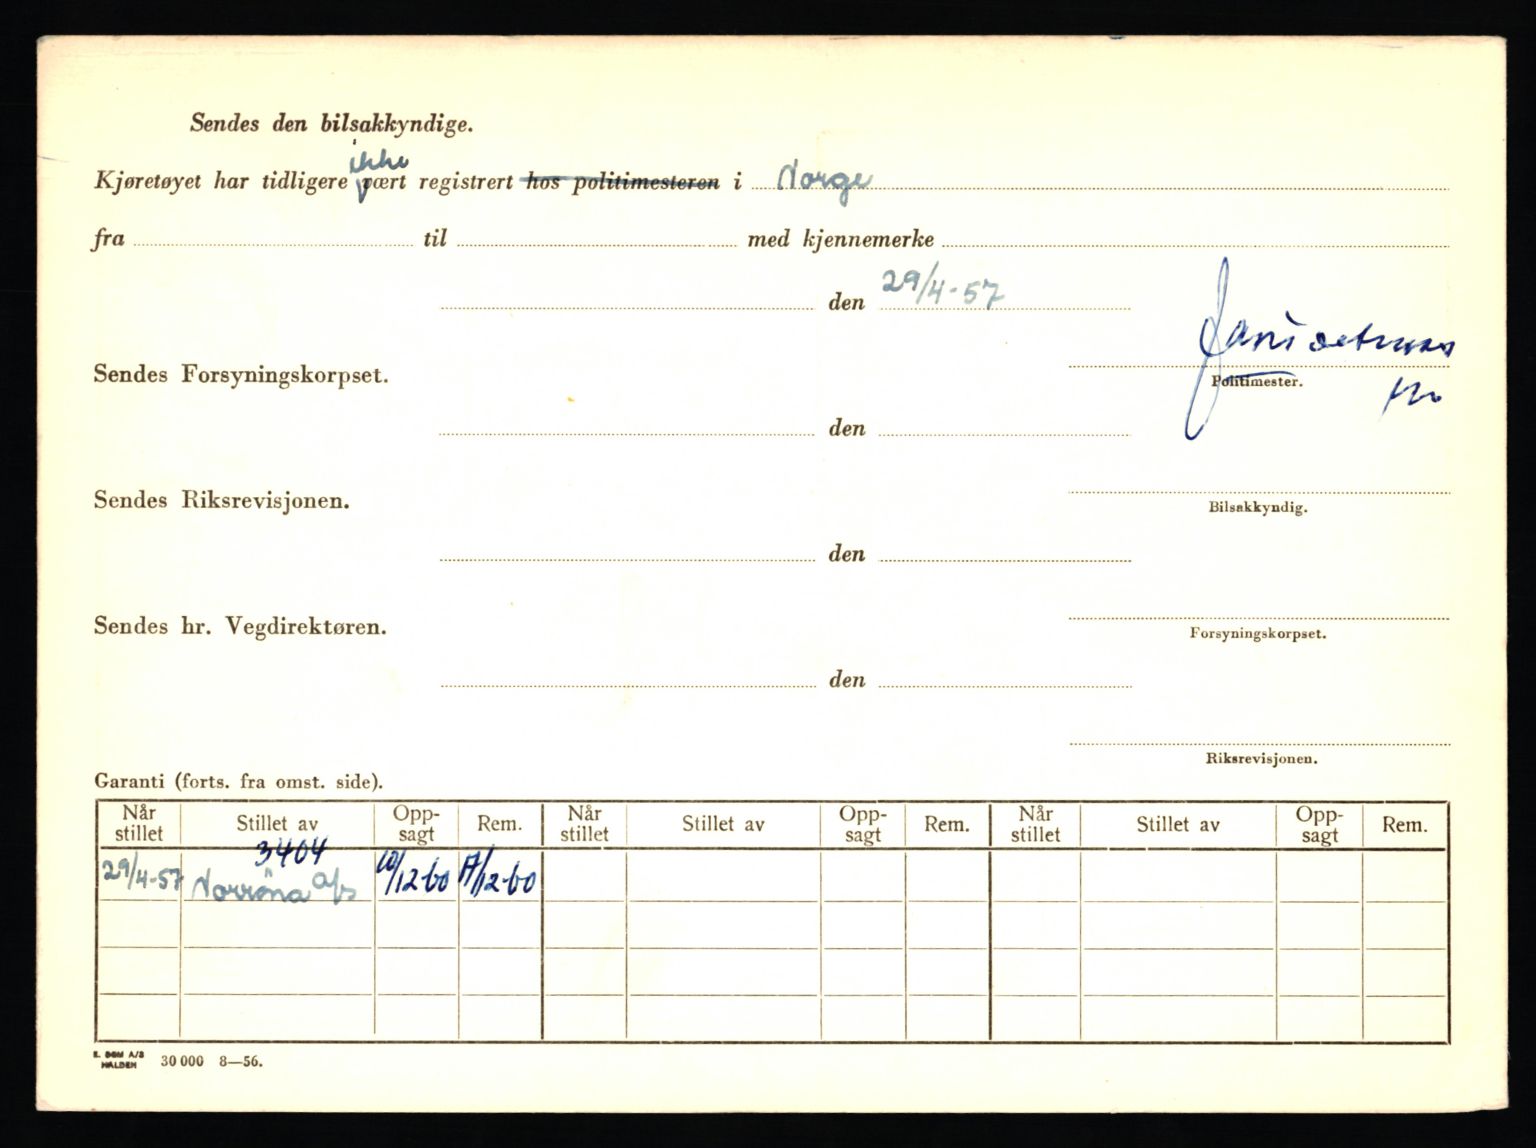 Sendes den bilsakkyndige.
ikke
Kjøretøyet har tidligere vært registrert hos politimesteren i Norge
fra til med kjennemerke
den 29/4-57
Sendes Forsyningskorpset.
Politimester.
den
Sendes Riksrevisjonen.
Bilsakkyndig.
den
Sendes hr. Vegdirektøren.
Forsyningskorpset.
den
Riksrevisjonen.
Garanti (forts. fra omst. side).
Når stillet Stillet av Opp-sagt Rem. Når stillet Stillet av Opp-sagt Rem. Når stillet Stillet av Opp-sagt Rem.
3404
29/4-57 Norröna a/s 10/12-60 17/12-60
E. SEM A/S
HALDEN 30 000 8—56.